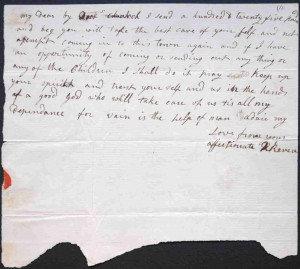 my dear by I send a hundred & twenty five
and beg you will take the best care of your self and not
attempt coming in to this town again and if I have
an opportunity of coming or sending out any thing or
any of the Children I shall do it pray keep up
your spirits and trust your self and us in the hands
of a good God who will take care of us tis all my
dependance for vain is the help of man adieu my
Love from your
affectionate Revere